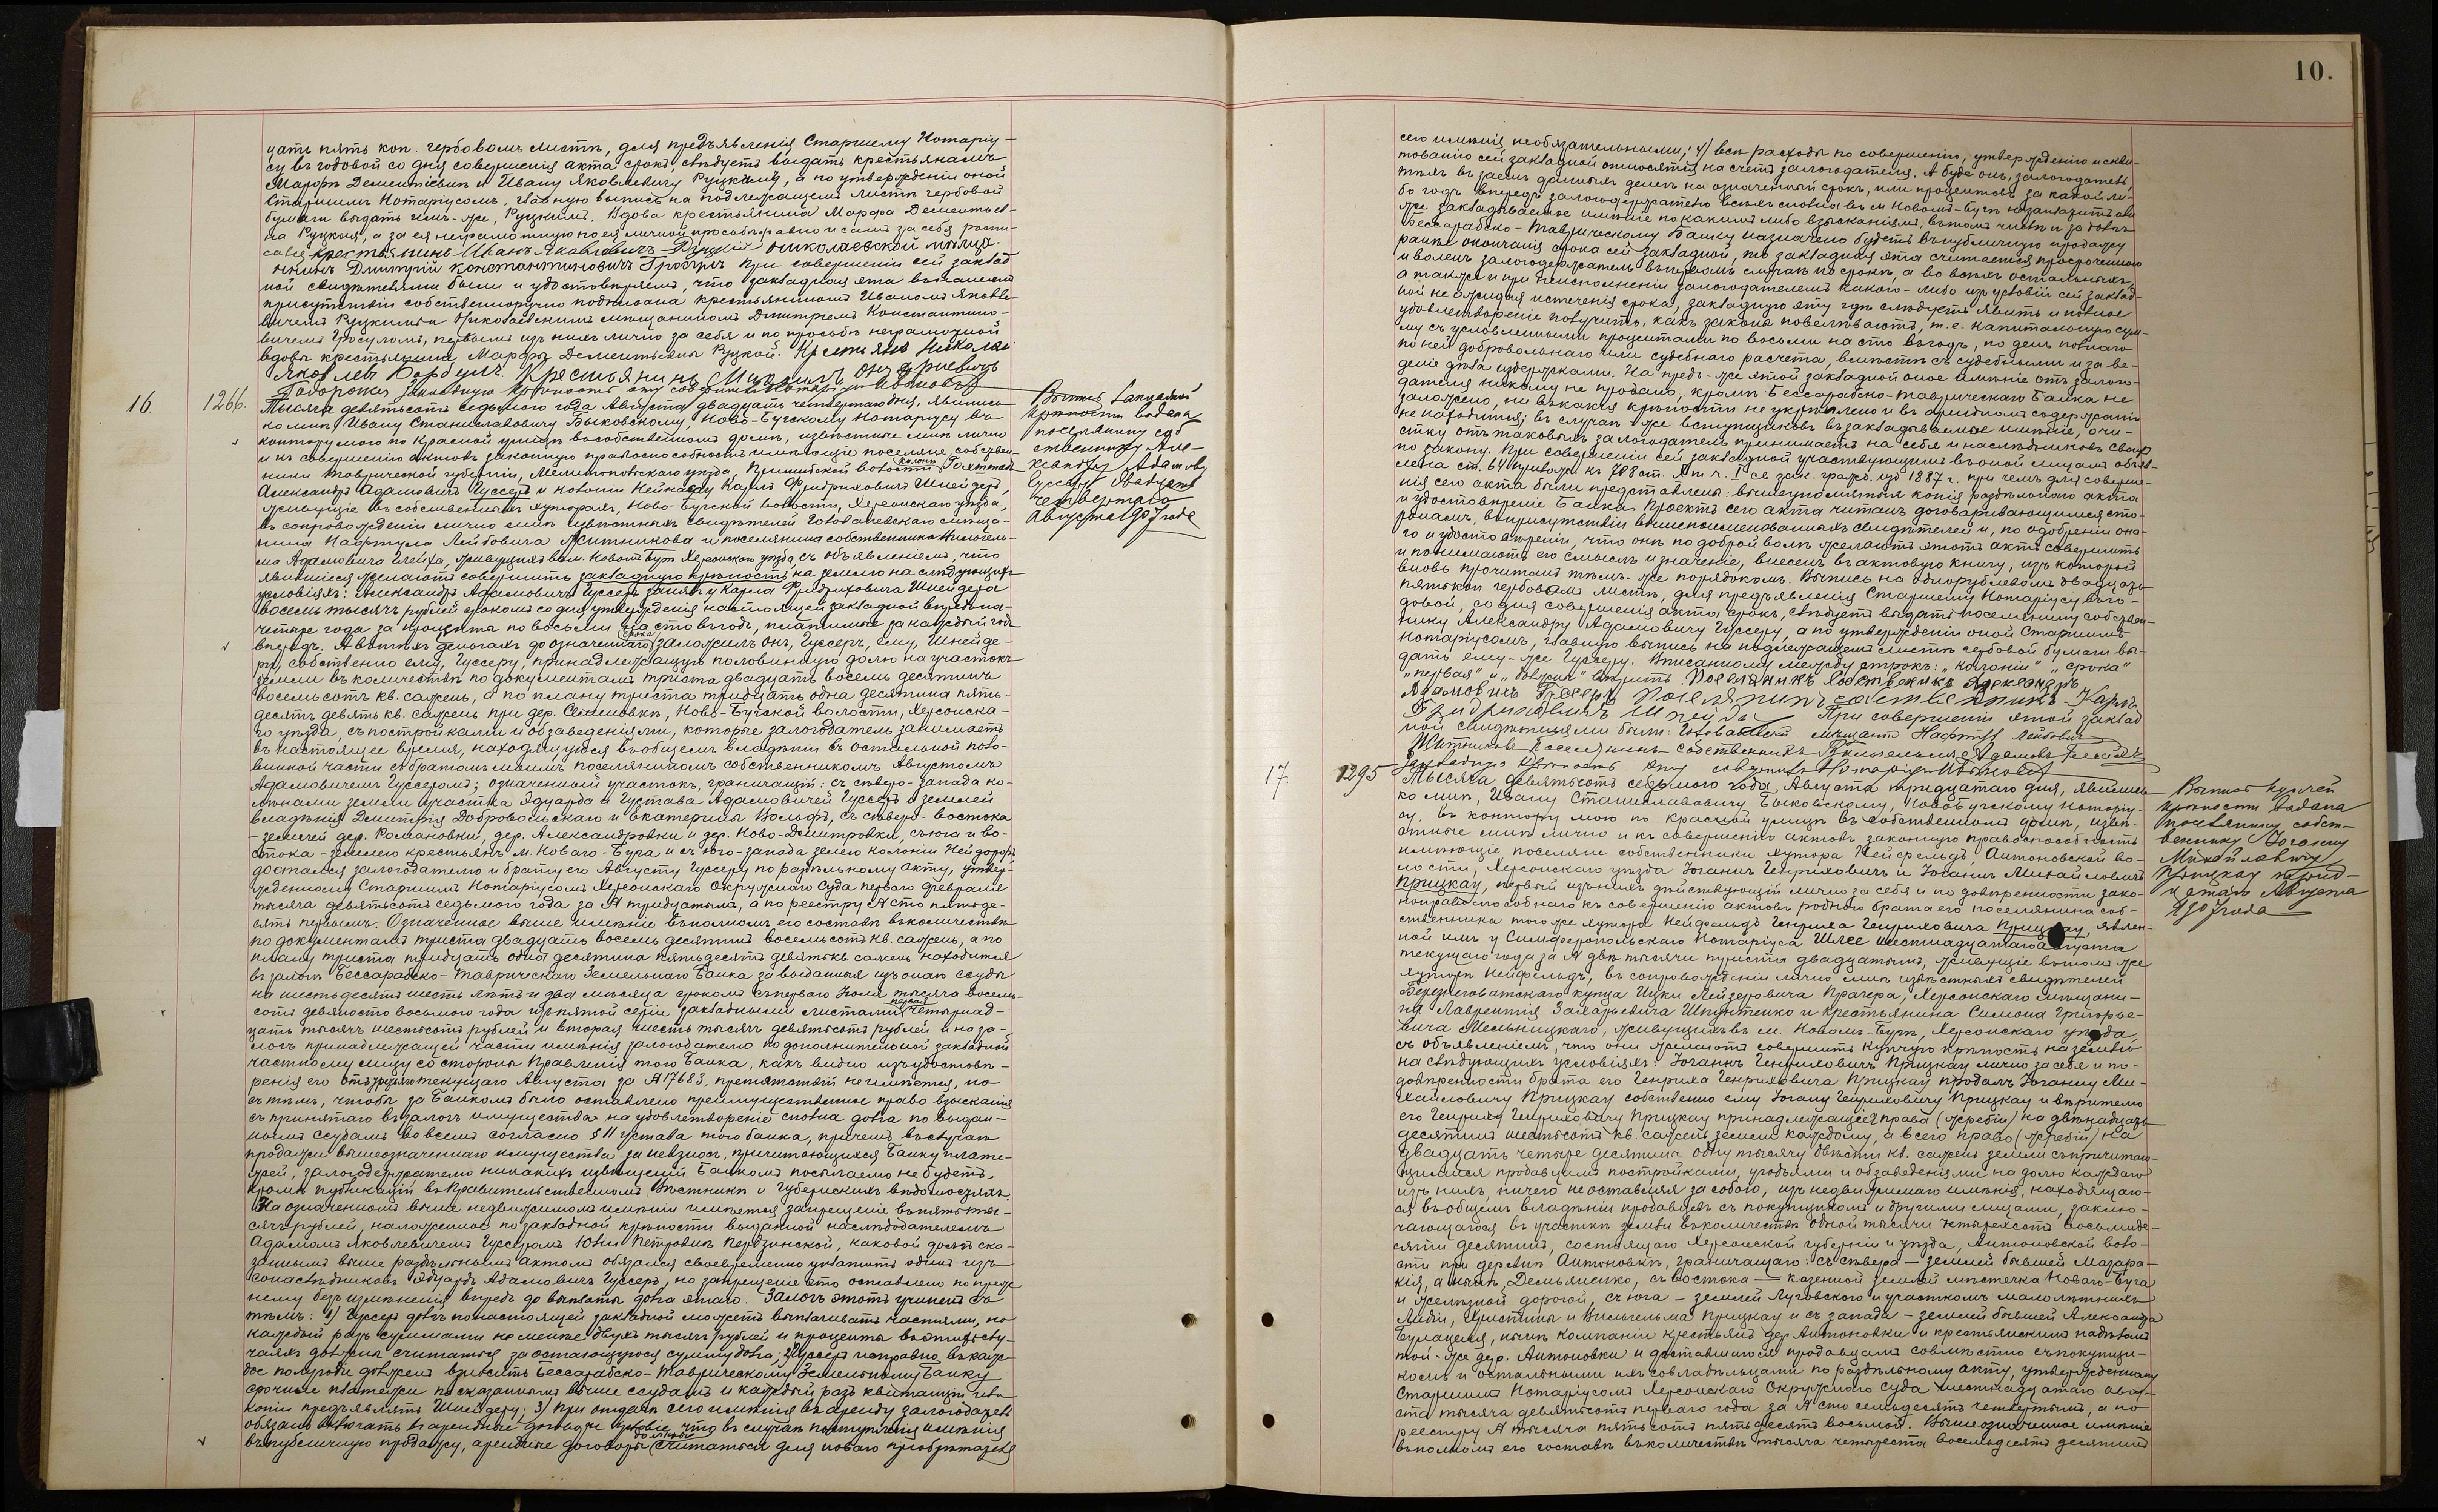 цать пять коп. гербовомъ листѣ, для предъявленія Старшему Нотаріу-
су въ годовой со дня совершенія акта срокъ, слѣдуетъ выдать крестьянамъ
Марфѣ Дементіевнѣ и Ивану Яковлевичу Руцкимъ, а по утвержденіи оной
Старшимъ Нотаріусомъ, главную выпись на подлежащемъ листѣ гербовой
бумаги выдать имъ-же, Руцкимъ. Вдова крестьянина Марфа Дементьев-
на Руцкая, а за ея неграмотную по ея личной просьбѣ, равно и самъ за себя роспи-
сался крестьянинъ Иванъ Яковлевичъ Руцкій Николаевской мѣща-
нинъ Дмитрій Константиновичъ Гросулъ При совершеніи сей заклад
ной свидѣтелями были и удостовѣряемъ, что закладная эта въ нашемъ
присутствіи собственноручно подписана крестьяниномъ Иваномъ Яковле-
вичемъ Руцкимъ и Николаевскимъ мѣщаниномъ Дмитріемъ Константино-
вичемъ Гросуломъ, первымъ изъ нихъ лично за себя и по просьбѣ неграмотной
вдовы крестьянина Марфы Дементьевны Руцкой. Крестьянъ Николай
Яковлев Крестьянинъ
закладную крѣпость эту совершилъ Нотаріусъ
16 1266. Тысяча девятьсотъ седьмого года Августа двадцать четвертаго дня, явились
ко мнѣ, Ивану Станиславовичу Быковскому, Ново-Бугскому Нотаріусу въ
контору мою по Красной улицѣ въ собственномъ домѣ, извѣстные мнѣ лично
и къ совершенію актовъ законную правоспособность имѣющіе поселяне собствен-
ники Таврической губерніи, Мелитопольскаго уѣзда, Пришибской волости,
колоніи
Александръ Адамовичъ Гуссеръ и колоніи Нейнасау Карлъ Фридриховичъ Шнейдеръ,
живущіе въ собственныхъ хуторахъ, Ново-Бугской волости, Херсонскаго уѣзда,
въ сопровожденіи лично мнѣ извѣстныхъ свидѣтелей Головалевскаго мѣща-
нина Нафтула Лейбовича Житникова и поселянина собственника Вильгель-
ма Адамовича живущихъ въ м. Новомъ Бугѣ Херсонскаго уѣзда, съ объявленіемъ, что
явившіеся желаютъ совершить закладную крѣпость на землю на слѣдующихъ
условіяхъ: Александръ Адамовичъ Гуссеръ занялъ у Карла Фридриховича Шнейдера
восемь тысячъ рублей срокомъ со дня утвержденія настоящей закладной впредь на-
четыре года за проценты по восьми на сто въ годъ, платимые за каждый годъ
срока
впередъ. А въ тѣхъ деньгахъ до означеннаго заложилъ онъ, Гуссеръ, ему, Шнейде-
ру, собственно ему, Гуссеру, принадлежащую половинную долю на участокъ
земли въ количествѣ по документамъ триста двадцать восемь десятинъ
восемьсотъ кв. сажень, а по плану триста тридцать одна десятина пять-
десятъ девять кв. сажень при дер. Семеновкѣ, Ново-Бугской волости, Херсонска-
го уѣзда, съ постройками и обзаведеніями, которые залогодатель занимаетъ
въ настоящее время, находящуюся въ общемъ владѣніи въ остальной поло-
винной части съ братомъ моимъ поселяниномъ собственникомъ Августомъ
Адамовичемъ Гуссеромъ; означенный участокъ, граничащій: съ сѣверо-запада ко-
лѣнами земли участка Эдуарда и Густава Адамовичей Гуссеръ и землей
владѣнія Дмитрія Добровольскаго и Екатерины Вольфъ, съ сѣверо-востока
- землей дер. Романовки, дер. Александровки и дер. Ново-Дмитровки, съ юга и во-
стока - землею крестьянъ м. Новаго-Буга и съ юго-запада землею колоніи Нейдорфъ
достался залогодателю и брату его Августу Гуссеру по раздѣльному акту, утвер-
жденному Старшимъ Нотаріусомъ Херсонскаго Окружнаго Суда перваго Февраля
тысяча девятьсотъ седьмого года за № тридцатымъ, а по реестру № сто пятьде-
сятъ первымъ. Означенное выше имѣніе въ полномъ его составѣ въ количествѣ
по документамъ триста двадцать восемь десятинъ восемьсотъ кв. сажень, а по
плану триста тридцать одна десятина пятьдесятъ девять кв. сажень находится
въ залогѣ Бессарабско-Таврическаго Земельнаго Банка за выданныя изъ онаго ссуды
на шестьдесятъ шесть лѣтъ и два мѣсяца срокомъ съ перваго Іюля тысяча восемь-
первая
сотъ девяносто восьмого года изъ пятой серіи закладными листами четырнад-
цать тысячъ шестьсотъ рублей и вторая шесть тысячъ девятьсотъ рублей и на за-
логъ принадлежащей части имѣнія залогодателю по дополнительной закладной
частному лицу со стороны Правленія того Банка, какъ видно изъ удостовѣ-
ренія его отъ текущаго Августа за №17683, препятствій не имѣется, но
съ тѣмъ, чтобы за Банкомъ было оставлено преимущественное право взысканія
съ принятаго въ залогъ имущества на удовлетвореніе сполна долга по выдан-
нымъ ссудамъ во всемъ согласно § 11 Устава того банка, причемъ въ случаѣ
продажи вышеозначеннаго имущества за невзносъ, причитающихся Банку плате-
жей, залогодержателю никакихъ извѣщеній Банкомъ посылаемо не будетъ,
кромѣ публикацій въ Правительственномъ Вѣстникѣ и Губернскихъ вѣдомостяхъ.
На означенномъ выше недвижимомъ имѣніи имѣется запрещеніе въ пять ты-
сячъ рублей, наложенное по закладной крѣпости выданной наслѣдодателемъ
Адамомъ Яковлевичемъ Гуссеромъ Юліи Петровнѣ каковой долгъ ска-
заннымъ выше раздѣльнымъ актомъ обязался своевременно уплатить одинъ изъ
сонаслѣдниковъ Эдуардъ Адамовичъ Гуссеръ, но запрещеніе это оставлено по преж
нему безъ измѣненія впредь до выплаты долга этаго. Залогъ этотъ учиненъ съ
тѣмъ: 1) Гуссеръ долгъ по настоящей закладной можетъ выплачивать частями, но
каждый разъ суммами не менѣе двухъ тысячъ рублей и проценты въ этихъ слу-
чаяхъ должны считаться за остающуюся сумму долга; 2) Гуссеръ исправно, въ каж-
дое полугодіе долженъ взносить Бессарабско-Таврическому Земельному Банку
срочные платежи по сказаннымъ выше ссудамъ и каждый разъ квитанціи или
копіи предъявлять Шнейдеру; 3) При отдачѣ сего имѣнія въ аренду залогодатель
обязанъ включать въ арендные договоры условіе, что въ случаѣ поступленія имѣнія
должны
въ публичную продажу, арендные договоры считаться для новаго пріобрѣтателя
Выпись закладной
крѣпости выдана
поселянину соб
ственнику Але-
ксандру Адамову
Гуссеру двадцать
четвертаго
Августа 1907 года
10.
сего имѣнія необязательными; 4) всѣ расходы по совершенію, утвержденію и скви-
тованію сей закладной относятся на счетъ залогодателя. А буде онъ, залогодатель,
тѣхъ въ заемъ данныхъ денегъ на означенный срокъ, или процентовъ за какой ли-
бо годъ впередъ залогодержателю всѣхъ сполна въ м. Новомъ-Бугѣ не заплатитъ или
же закладываемое имѣніе по какимъ либо взысканіямъ, въ томъ числѣ и за долгъ
Бессарабско-Таврическому Банку назначено будетъ въ публичную продажу
ранѣе окончанія срока сей закладной, то закладная эта считается просроченною
и воленъ залогодержатель въ первомъ случаѣ по срокѣ, а во всѣхъ остальныхъ,
а также и при неисполненіи залогодателемъ какого-либо изъ условій сей заклад-
ной не ожидая истеченія срока, закладную эту гдѣ слѣдуетъ явить и полное
удовлетвореніе получить, какъ законы повелѣваютъ, т. е. капитальную сум-
му съ условленными процентами по восьми на сто въ годъ, по день полнаго
по ней добровольнаго или судебнаго расчета, вмѣстѣ съ судебными и за ве-
деніе дѣла издержками. На предь-же этой закладной оное имѣніе отъ залого-
дателя никому не продано, кромѣ Бессарабско-Таврическаго Банка не
заложено, ни въ какія крѣпости не укрѣплено и въ арендномъ содержаніи
не находится; въ случаѣ же вступщиковъ въ закладываемое имѣніе, очи-
стку отъ таковыхъ залогодатель принимаетъ на себя и наслѣдниковъ своихъ
по закону. При совершеніи сей закладной участвующимъ въ оной лицамъ объяв-
лена ст. 64 прилож. къ 708 ст. X т. ч. I Св. зак. гражд. изд. 1887 г. при чемъ для соверше-
нія сего акта были представлены: вышеупомянутыя копія раздѣльнаго акта
и удостовѣреніе Банка. Проектъ сего акта читанъ договаривающимся сто-
ронамъ, въ присутствіи вышепоименованныхъ свидѣтелей и, по одобреніи она-
го и удостовѣреніи, что онѣ по доброй волѣ желаютъ этотъ актъ совершить
и понимаютъ его смыслъ и значеніе, внесенъ въ актовую книгу, изъ которой
вновь прочитанъ тѣмъ-же порядкомъ. Выпись на однорублевомъ двадцать
пять коп. гербовомъ листѣ, для предъявленія Старшему Нотаріусу въ го-
довой, со дня совершенія акта, срокъ, слѣдуетъ выдать поселянину собствен-
нику Александру Адамовичу Гуссеру, а по утвержденіи оной Старшимъ
Нотаріусомъ, главную выпись на подлежащемъ листѣ гербовой бумаги вы-
дать ему-же Гуссеру. Вписанному между строкъ: „колоніи" „срока"
„первая" и „должны" вѣрить. Поселянинъ собственикъ Александръ
Адамовичъ Гуссеръ Поселянинъ собственникъ Карлъ
Фридриховичъ Шнейдеръ При совершеніи этой заклад
ной свидѣтелями были: мѣщанинъ Нафтулъ Лейбовичъ
Житниковъ Поселянинъ собственникъ Вильгельмъ Адамовъ
закладную крѣпость эту совершилъ Нотаріусъ
17 1295 Тысяча девятьсотъ седьмого года, Августа тридцатаго дня, явились
ко мнѣ, Ивану Станиславовичу Быковскому, Новобугскому Нотаріу-
су, въ контору мою по Красной улицѣ въ собственномъ домѣ, извѣ-
стные мнѣ лично и къ совершенію актовъ законную правоспособность
имѣющіе поселяне собственники хутора Нейфельдъ, Антоновской во-
лости, Херсонскаго уѣзда Іоганъ Генриховичъ и Іоганъ Михайловичъ
Прицкау, первый изъ нихъ дѣйствующій лично за себя и по довѣренности зако-
ноправоспособнаго къ совершенію актовъ роднаго брата его поселянина соб-
ственника того же хутора Нейфельдъ Генриха Генриховича Прицкау, явлен-
ной имъ у Симферопольскаго Нотаріуса Шлее шестнадцатаго августа
текущаго года за № двѣ тысячи триста двадцатымъ, живущіе въ томъ же
хуторѣ Нейфельдъ, въ сопровожденіи лично мнѣ извѣстныхъ свидѣтелей
Березнеговатскаго купца Ицки Лейзеровича Прагера, Херсонскаго мѣщани-
на Лаврентія Захарьевича Шпунтенко и крестьянина Симона Григорье-
вича Мельницкаго, живущихъ въ м. Новомъ-Бугѣ, Херсонскаго уѣзда,
съ объявленіемъ, что они желаютъ совершить купчую крѣпость на землю
на слѣдующихъ условіяхъ: Іоганъ Генриховичъ Прицкау лично за себя и по-
довѣренности брата его Генриха Генриховича Прицкау продалъ Іогану Ми-
хайловичу Прицкау собственно ему Іогану Генриховичу Прицкау и вѣрителю
его Генриху Генриховичу Прицкау принадлежащіе права (жребіи) на двѣнадцать
десятинъ шестьсотъ кв. сажень земли каждому, а всего право (жребіи) на
двадцать четыре десятины одну тысячу двѣсти кв. сажень земли съ причитаю-
щимися продавцамъ постройками, угодьями и обзаведеніями на долю каждаго
изъ нихъ, ничего не оставляя за собою, изъ недвижимаго имѣнія, находящаго-
ся въ общемъ владѣніи продавцевъ съ покупщикомъ и другими лицами, заклю-
чающагося въ участкѣ земли въ количествѣ одной тысячи четырехсотъ восьмиде-
сяти десятинъ, состоящаго Херсонской губерніи и уѣзда, Антоновской воло-
сти при деревнѣ Антоновкѣ, граничащаго: съ сѣвера - землей бывшей Мазара-
кія, а нынѣ Демьяненко, съ востока - казенной землей мѣстечка Новаго-Буга
и желѣзной дорогой, съ юга - землей Луговского и участкомъ малолѣтнихъ
Лидіи, Христины и Вильгельма Прицкау и съ запада - землей бывшей Александра
Булацеля, нынѣ компаніи крестьянъ дер. Антоновки и крестьянскимъ надѣломъ
той-же дер. Антоновки и доставшагося продавцамъ совмѣстно съ покупщи-
комъ и остальными ихъ совладѣльцами по раздѣльному акту, утвержденному
Старшимъ Нотаріусомъ Херсонскаго Окружнаго Суда шестнадцатаго авгу-
ста тысяча девятьсотъ перваго года за № сто семьдесятъ четвертымъ, а по
реестру № тысяча пятьсотъ пятьдесятъ восьмой. Вышеозначенное имѣніе
въ полномъ его составѣ въ количествѣ тысяча четыреста восемьдесятъ десятинъ
Выпись купчей
крѣпости выдана
поселянину собст-
веннику Іогану
Михайловичу
Прицкау трид-
цатаго Августа
1907 года